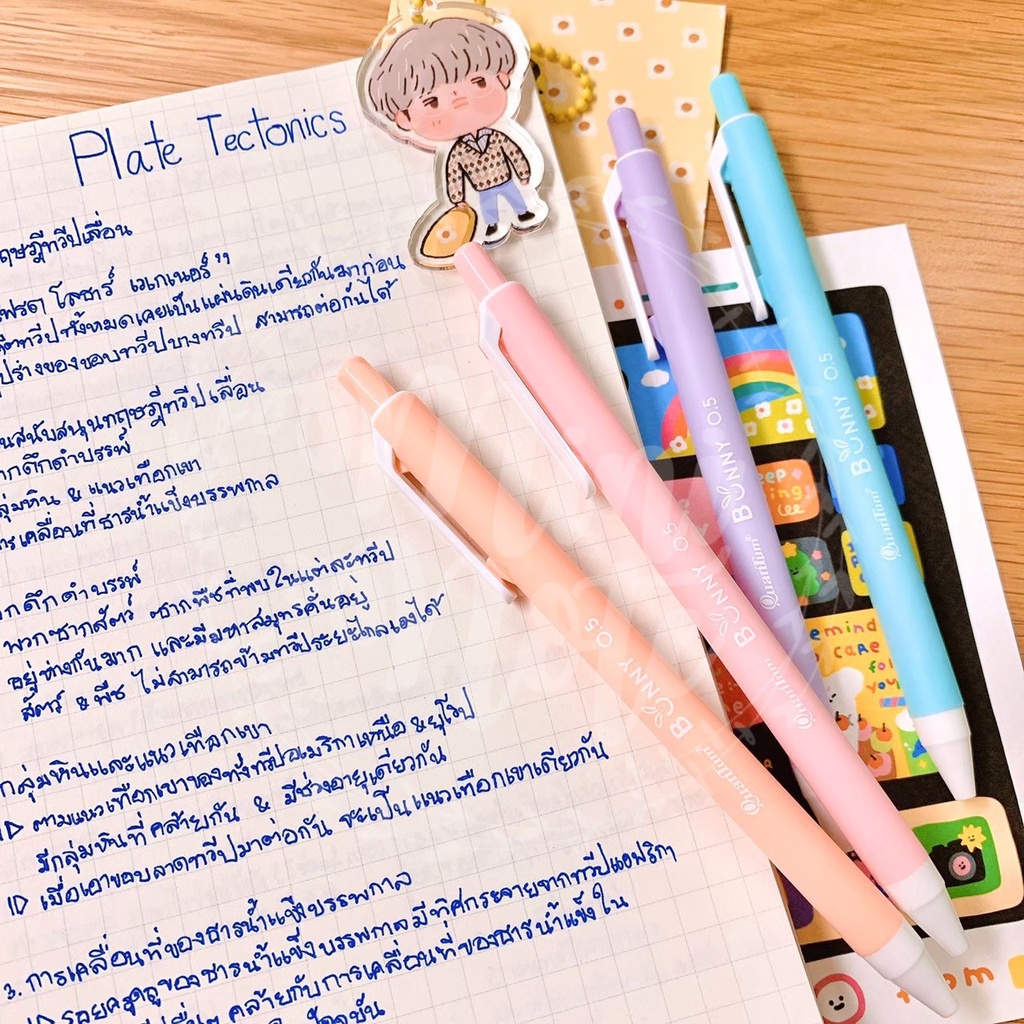 Plate Tectonics
ทฤษฎีทวีปเลื่อน
โลธาร์ เวเกเนอร์"
ทวีปทั้งหมดเคยเป็นแผ่นดินเดียวกันมาก่อน
ของขอบทวีปบางทวีป สามารถต่อกันได้
สนับสนุนทฤษฎีทวีปเลื่อน
ดึกดำบรรพ์
กลุ่มหิน & แนวเทือกเขา
การเคลื่อนที่ธารน้ำแข็งบรรพกาล
ดึกดำบรรพ์
พวกซากสัตว์ ซากพืชที่พบในแต่ละทวีป
อยู่ห่างกันมาก และมีมหาสมุทรคั่นอยู่
สัตว์ & พืช ไม่สามารถข้ามทวีประยะไกลเองได้
กลุ่มหินและแนวเทือกเขา
ตามแนวเทือกเขาของทั้งทวีปอเมริกาเหนือ & ยุโรป
มีกลุ่มหินที่คล้ายกัน & มีช่วงอายุเดียวกัน
เมื่อเอาขอบลาดทวีปมาต่อกัน จะเป็นแนวเทือกเขาเดียวกัน
3. การเคลื่อนที่ของธารน้ำแข็งบรรพกาล
รอยครูดถูของธารน้ำแข็งบรรพกาลมีทิศกระจายจากทวีปแอฟริกา
คล้ายกับการเคลื่อนที่ของธารน้ำแข็งใน
Quantum BUNNY 0.5
Quantum BUNNY 0.5
Quantum BUNNY 0.5
Quantum BUNNY 0.5